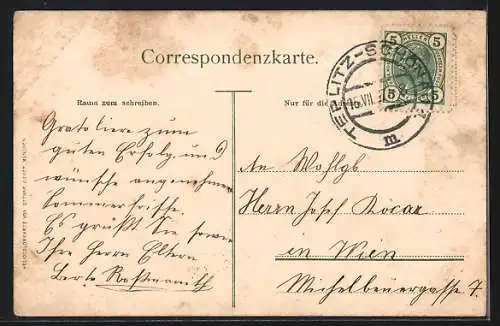 Correspondenzkarte.
Raum zum schreiben.
Nur für die Adresse.
5 5
5 5
TEPLITZ-SCHÖNAU
15.VII.
m
Gratoliere zum
guten Erfolg und
wünsche angenehme
Sommerfrische.
Es grüßt Sie sowie
Ihre Herrn Eltern
Berta
An Wohlgb
Herrn Josef Kocar
in Wien
Michelbeuerngasse 7.